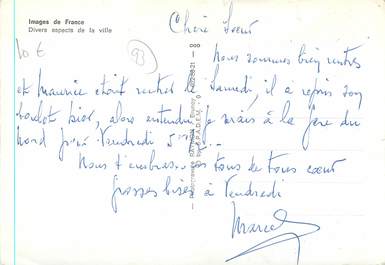 Images de France
Divers aspects de la ville
10 €
93
Chère Soeur
nous sommes bien rentrés
et Maurice était rentré le Samedi, il a repris son
boulot hier, alors entendu je serais à la gare du
Nord pour Vendredi
Nous t'embrassons tous de tous coeur
grosses bises à Vendredi
Marcel